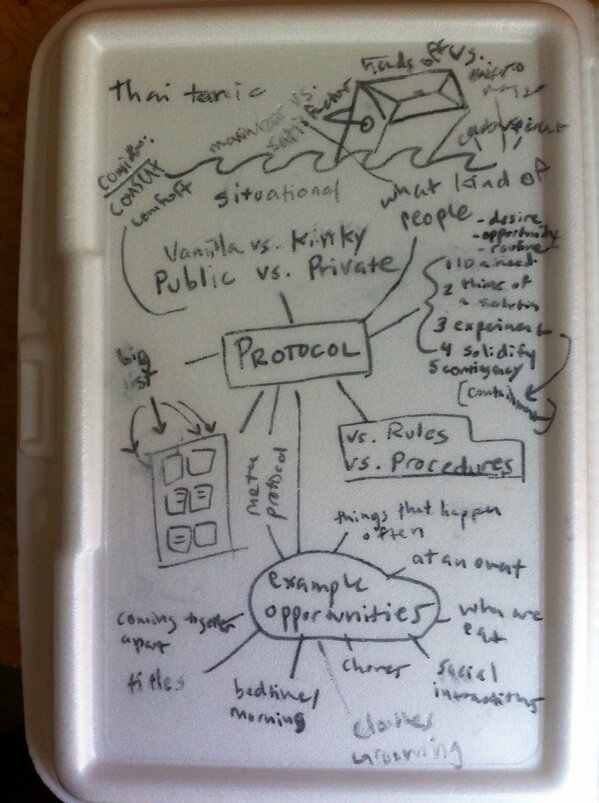 thai tanic
maximizer vs.
satisfactor
kinds of
vs.
micro
consent
comfort
situational
what kind of
people
- desire
- opportunity
- routine
Vanilla vs. Kinky
Public vs. Private
1 ID a need
2 think of
a solution
3 experiment
4 solidify
5 contingency
PROTOCOL
big
list
vs. Rules
vs. Procedures
meta
protocol
things that happen
often
at an event
example
opportunities
coming together
apart
titles
bedtime/
morning
chores
social
interactions
clothes
grooming